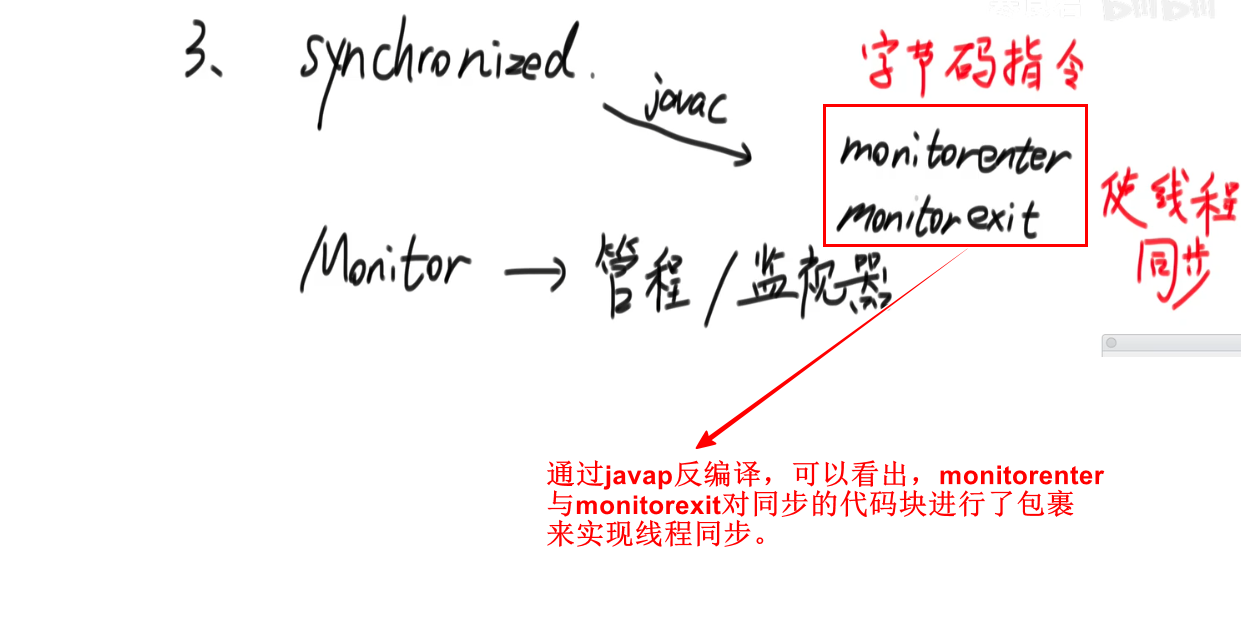 3、 synchronized.
javac
字节码指令
monitorenter
monitorexit
使线程
同步
Monitor → 管程 / 监视器
通过javap反编译，可以看出，monitorenter
与monitorexit对同步的代码块进行了包裹
来实现线程同步。